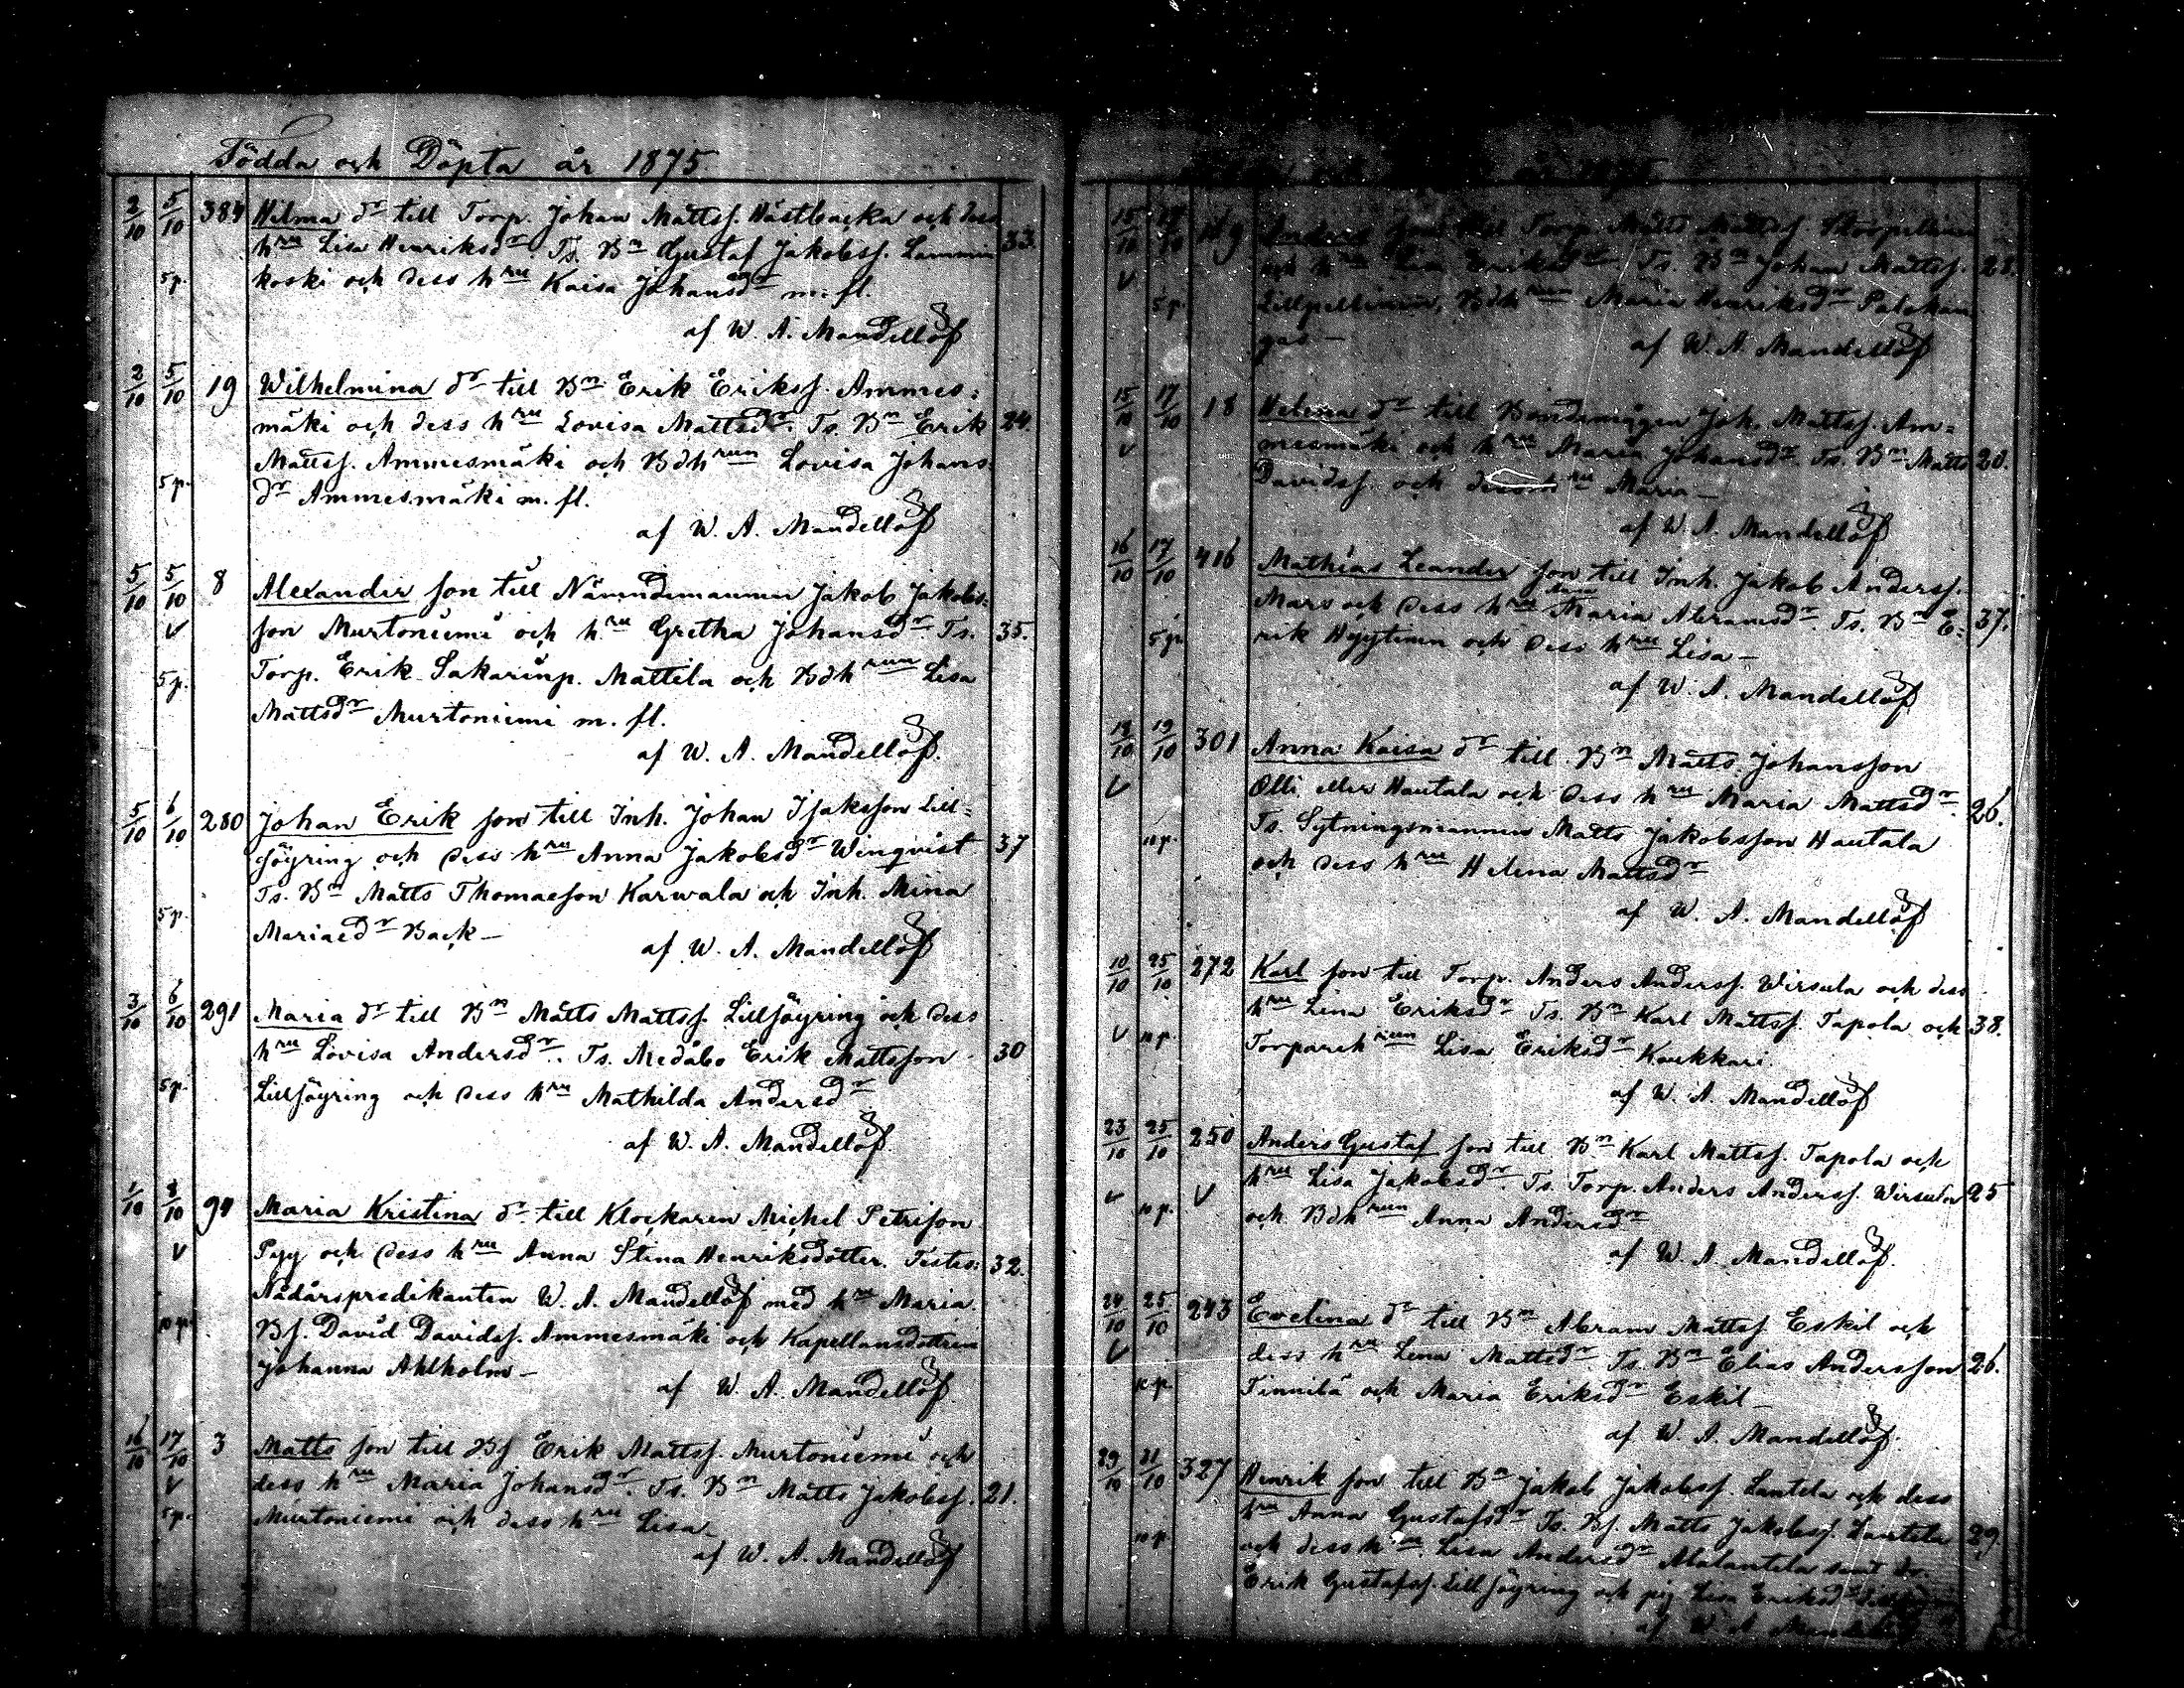 Födda och Döpta år 1875.
2/10 5/10 384 Hilma dr till Torp. Johan Mattsf. Hästbacka och dess
hru Lisa Henriksdr. Ts. Bn Gustaf Jakobsf. Lammin 33.
5 p. koski och dess hru Kaisa Johansdr m. fl.
af W. A. Mandellöf
2/10 5/10 19 Wilhelmina dr till Bn Erik Eriksf. Ammes=
mäki och dess hru Lovisa Mattsdr. Ts. Bn Erik 24.
Mattsf. Ammesmäki och Bdhrun Lovisa Johans
5 p. dr Ammesmäki m. fl.
af W. A. Mandellöf
5/10 5/10 8 Alexander son till Nämndemannen Jakob Jakobs=
V son Murtoniemi och hru Gretha Johansdr Ts. 35.
5 p. Torp. Erik Sakarinp. Mattila och Bdhrun Lisa
Mattsdr Murtoniemi m. fl.
af W. A. Mandellöf.
5/10 6/10 280 Johan Erik son till Inh. Johan Isaksson Lill=
söyring och dess hru Anna Jakobsdr Winqvist 37
Ts. Bn Matts Thomasson Karwala och Inh. Mina
5 p. Mariaedr Back—
af W. A. Mandellöf
3/10 6/10 291 Maria dr till Bn Matts Mattsf. Lillsöyring och dess
hru Lovisa Andersdr. Ts. Medåbo Erik Mattsson 30
5 p. Lillsöyring och dess hru Mathilda Andersdr
af W. A. Mandellöf.
1/10 8/10 94 Maria Kristina dr till Klockaren Michel Petrison
V Pyy och dess hru Anna Stina Henriksdotter. Testes: 32.
Nådårspredikanten W. A. Mandellöf med hru Maria.
10 p. Bs. David Davidsf. Ammesmäki och Kapellansdottren
Johanna Ahlholm—
af W. A. Mandellöf
16/10 17/10 3 Matts son till Bs Erik Mattsf. Murtoniemi och
V dess hru Maria Johansdr. Ts. Bn Matts Jakobsf. 21.
5 p. Murtoniemi och dess hru Lisa—
af W. A. Mandellöf
15/10 17/10 Anders son till Torp. Matts Mattsf. Storpeltonen
V och hru Lisa Eriksdr. Ts. Bn Johan Mattsf.
5 p. Lillpeltonen, Bdhrun Maria Henriksdr Palokan
gas—
af W. A. Mandellöf
15/10 17/10 18 Helena dr till Bondemågen Joh. Mattsf. Am=
V mesmäki och hru Maria Johansdr. Ts. Bn Matts 20.
Davidsf. och dess hru Maria—
af W. A. Mandellöf
16/10 17/10 416 Mathias Leander son till Inh. Jakob Andersf.
Mars och dess hru Maria Abramsdr. Ts. Bn E= 37.
5 p. rik Hyytinen och dess hru Lisa—
af W. A. Mandellöf
18/10 19/10 301 Anna Kaisa dr till Bn Matts Johansson
V Olli eller Hautala och dess hru Maria Mattsdr. 26.
10 p. Ts. Sytningsmannen Matts Jakobsson Hautala
och dess hru Helena Mattsdr
af W. A. Mandellöf
10/10 25/10 272 Karl son till Torp. Anders Andersf. Wirsula och dess
hru Lina Eriksdr Ts. Bn Karl Mattsf. Tapola och 38.
V 10 p. Torparehrun Lisa Eriksdr Kaukkari.
af W. A. Mandellöf
23/10 25/10 250 Anders Gustaf son till Bn Karl Mattsf. Tapola och
hru Lisa Jakobsdr. Ts. Torp. Anders Andersf. Wirsula 25
V 10 p. V och Bdhrun Anna Andersdr
af W. A. Mandellöf.
24/10 25/10 243 Evelina dr till Bn Abram Mattsf Eskil och
V dess hru Lena Mattsdr Ts. Bn Elias Andersson 26.
10 p. Tinnilä och Maria Eriksdr Eskil—
af W. A. Mandellöf.
29/10 327 Henrik son till Bn Jakob Jakobsf. Lantela och dess
hru Anna Gustafsdr Ts. Bs. Matts Jakobsf. Lantela 29.
10 p. och dess hru Lisa Andersdr Alalantela samt dr.
Erik Gustafsf. Lillsöyring och pig. Lisa Eriksdr
af W. A. Mandellöf